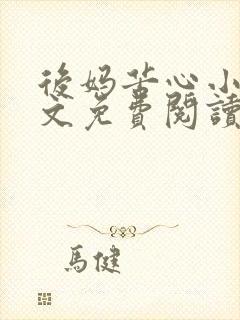 後妈苦心小
文免費閱讀
馬健